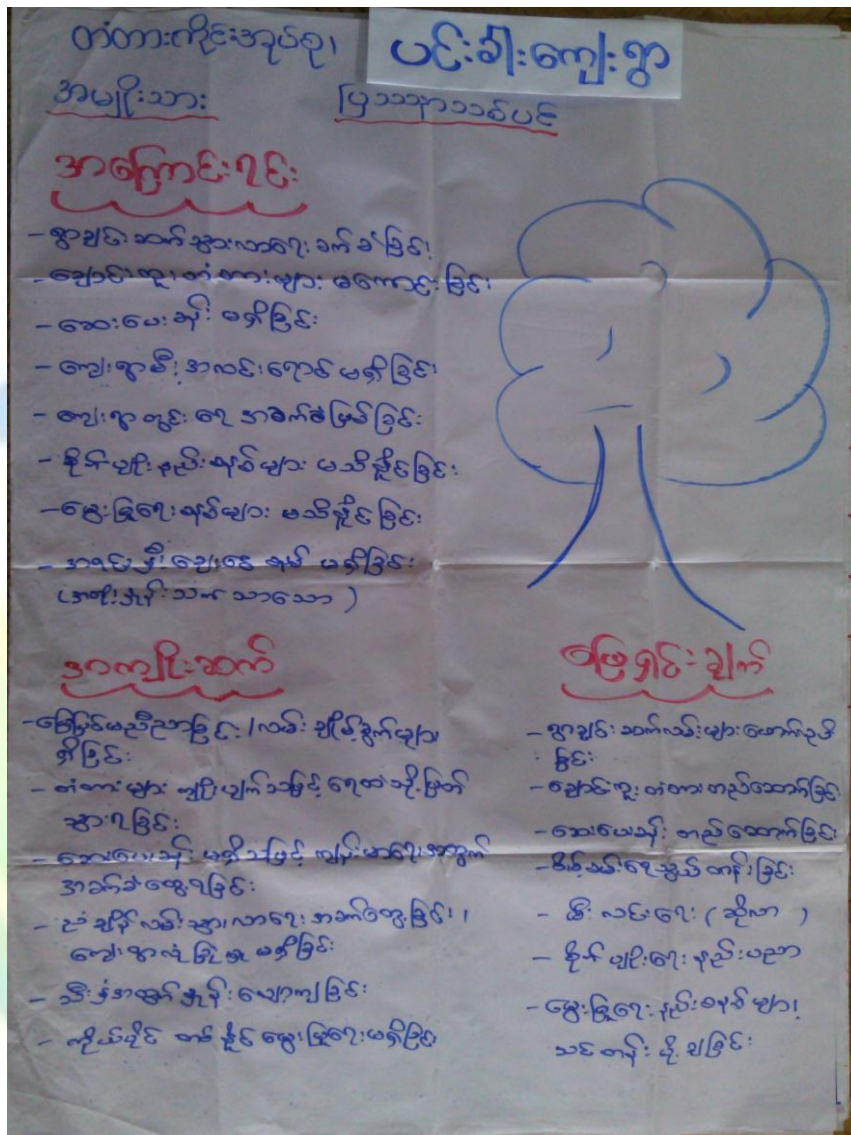 တံတားကိုင်းအုပ်စု၊
ပင်းခါးကျေးရွာ
အမျိုးသား
ပြဿနာသစ်ပင်
အကြောင်းရင်း
- ရွာချင်းဆက်သွားလာရေး ခက်ခဲခြင်း
- ချောင်းကူးတံတားများ မကောင်းခြင်း
- ဆေးပေးခန်း မရှိခြင်း
- ကျေးရွာမီးအလင်းရောင် မရှိခြင်း
- ကျေးရွာတွင်းရေ အခက်ခဲဖြစ်ခြင်း
- စိုက်ပျိုးနည်းစနစ်များ မသိရှိခြင်း
- မွေးမြူရေးစနစ်များ မသိရှိခြင်း
- အရင်းနှီးချေးငွေစနစ် မရှိခြင်း
(အတိုးနှုန်းသက်သာသော)
အကျိုးဆက်
- မြေပြင်မညီညာခြင်း၊ လမ်းချိုင့်ခွက်များ
ရှိခြင်း
- တံတားများ ကျိုးပျက်သဖြင့် ရေထဲသို့ဖြတ်
သွားရခြင်း
- ဆေးပေးခန်း မရှိသဖြင့် ကျန်းမာရေးအတွက်
အခက်ခဲတွေ့ရခြင်း
- ညချိန်လမ်းသွားလာရေး အခက်တွေ့ခြင်း၊
ကျေးရွာလုံခြုံမှု မရှိခြင်း
- သီးနှံအထွက်နှုန်းလျော့ကျခြင်း
- ကိုယ်ပိုင် တစ်နိုင်မွေးမြူရေးမရှိခြင်း
ဖြေရှင်းချက်
- ရွာချင်းဆက်လမ်းများဖောက်လုပ်
ခြင်း
- ချောင်းကူးတံတားတည်ဆောက်ခြင်း
- ဆေးပေးခန်း တည်ဆောက်ခြင်း
- စိမ့်စမ်းရေသွယ်တန်းခြင်း
- မီးလင်းရေး (ဆိုလာ)
- စိုက်ပျိုးရေးနည်းပညာ
- မွေးမြူရေးနည်းစနစ်များ
သင်တန်း ပို့ချခြင်း